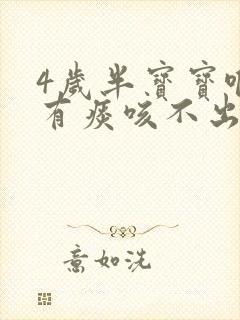 4歲半寶寶
有痰咳不出
意如洗